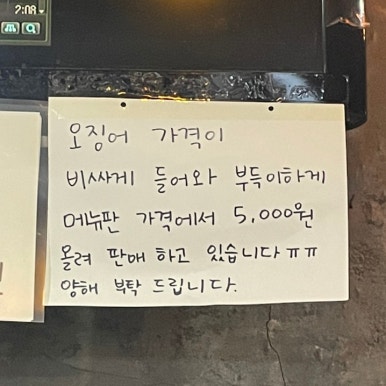 2:08
오징어 가격이
비싸게 들어와 부득이하게
메뉴판 가격에서 5,000원
올려 판매 하고 있습니다 ㅠㅠ
양해 부탁 드립니다.